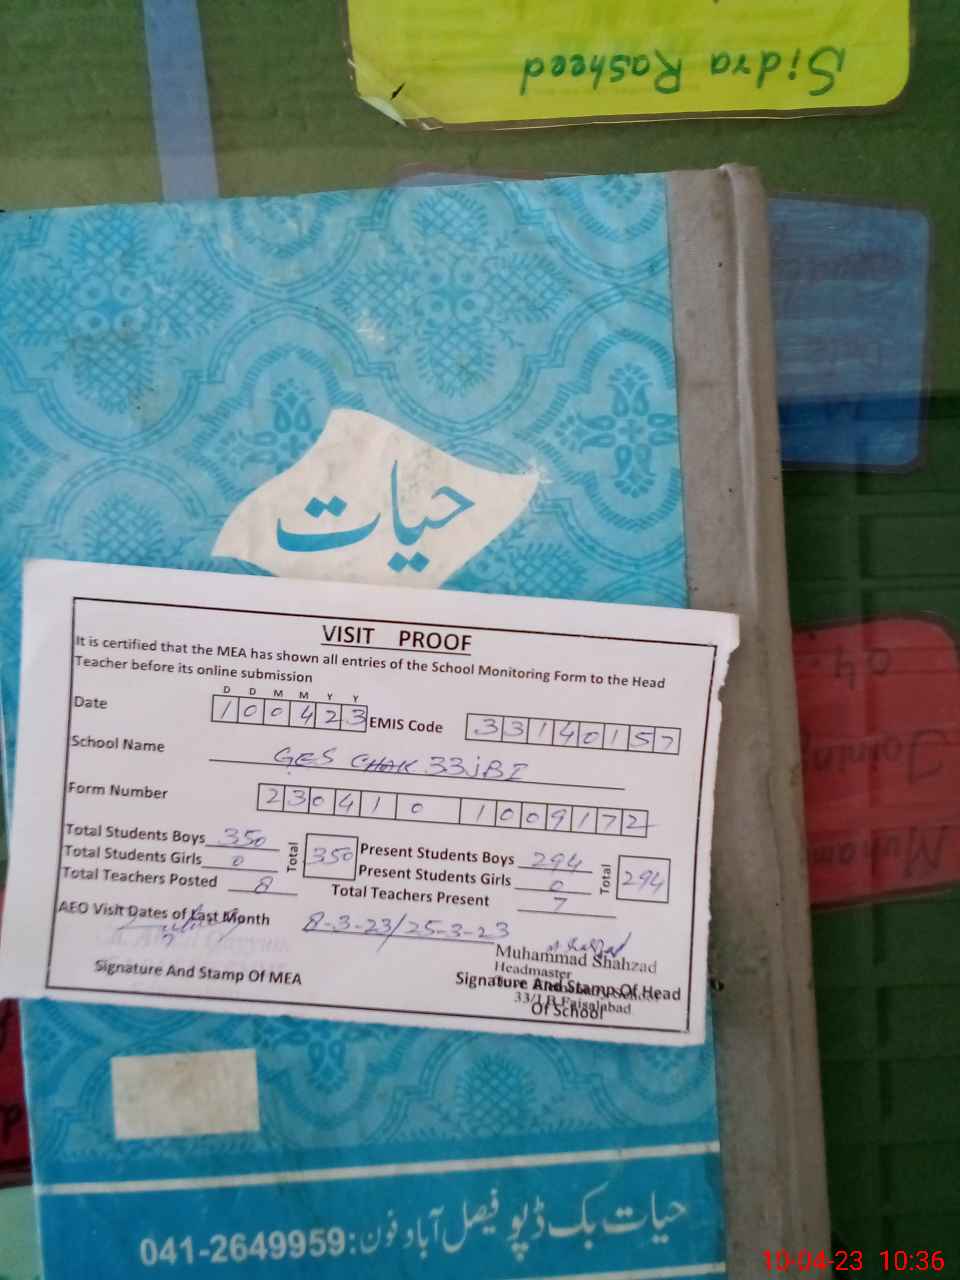 Sidra Rasheed
حیات
VISIT PROOF
It is certified that the MEA has shown all entries of the School Monitoring Form to the Head
Teacher before its online submission
D D M M Y Y
Date 1 0 0 4 2 3 EMIS Code 3 3 1 4 0 1 5 7
School Name GES CHAK 33JBI
Form Number 2 3 0 4 1 0 1 0 0 9 1 7 2
Total Students Boys 350 Total 350 Present Students Boys 294 Total 294
Total Students Girls 0 Present Students Girls 0
Total Teachers Posted 8 Total Teachers Present 7
AEO Visit Dates of Last Month 8-3-23/25-3-23
Muhammad Shahzad
Headmaster
33/J.B Faisalabad
Signature And Stamp Of MEA Signature And Stamp Of Head
Of School
04
Joining
حیات بک ڈپو فیصل آباد فون: 041-2649959
10-04-23 10:36